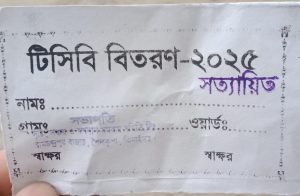 টিসিবি বিতরণ-২০২৫
সত্যায়িত
নামঃ
গ্রামঃ সভাপতি ওয়ার্ডঃ
স্বাক্ষর স্বাক্ষর